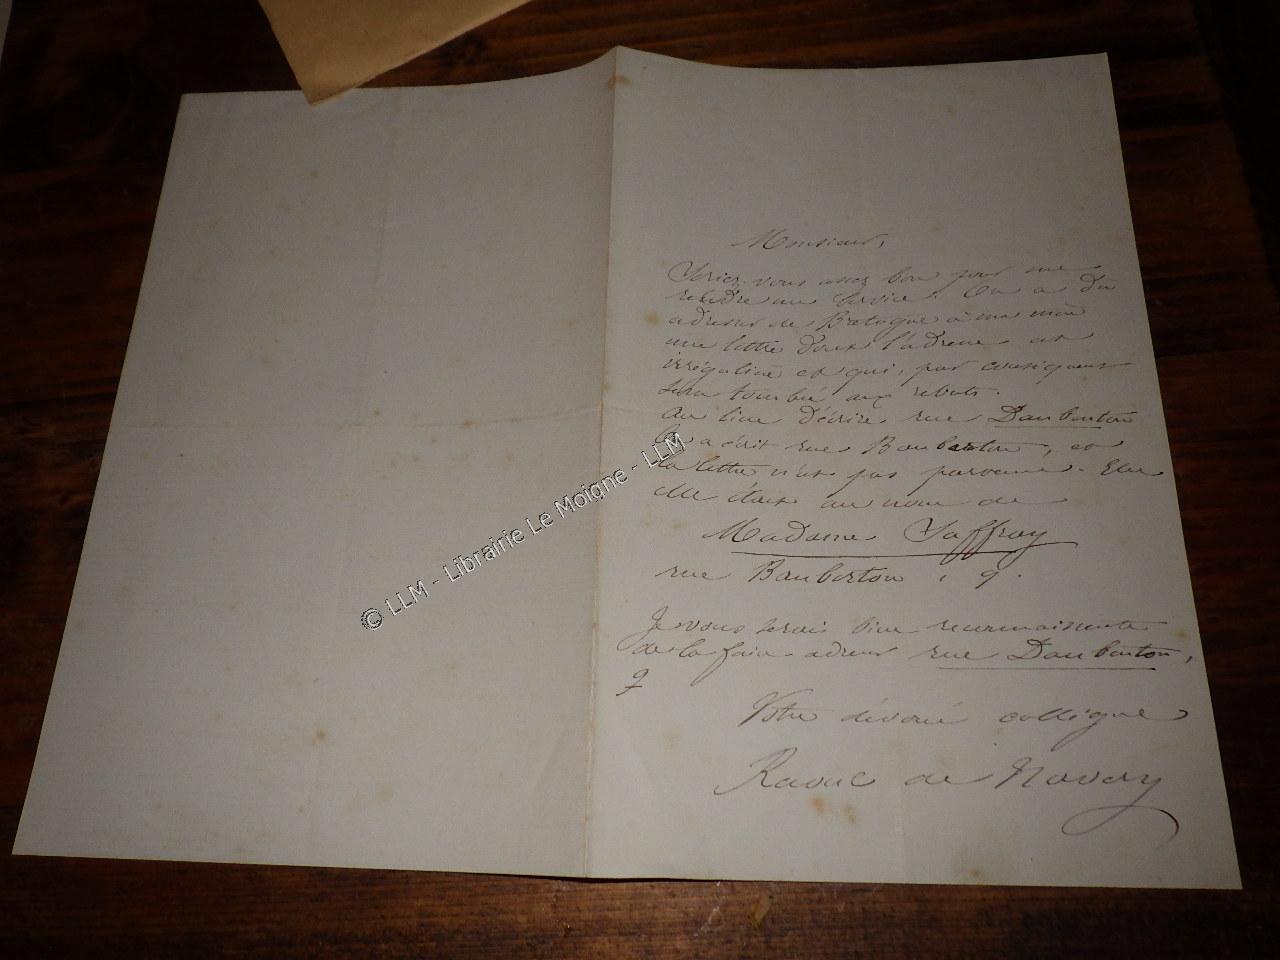 Monsieur,
Seriez-vous assez bon pour me
rendre un service. On a dû
adresser de Bretagne à ma mère
une lettre dont l'adresse est
irrégulière et qui, par conséquent
sera tombée aux rebuts.
Au lieu d'écrire rue Daubenton
On a écrit rue Baubenton, et
la lettre n'est pas parvenue.
elle était au nom de
Madame Jaffray
rue Baubenton, 9.
Je vous serais bien reconnaissante
de la faire adresser rue Daubenton,
9
Votre dévoué collègue
Raoul de Navery
© LLM - Librairie Le Moigne - LLM